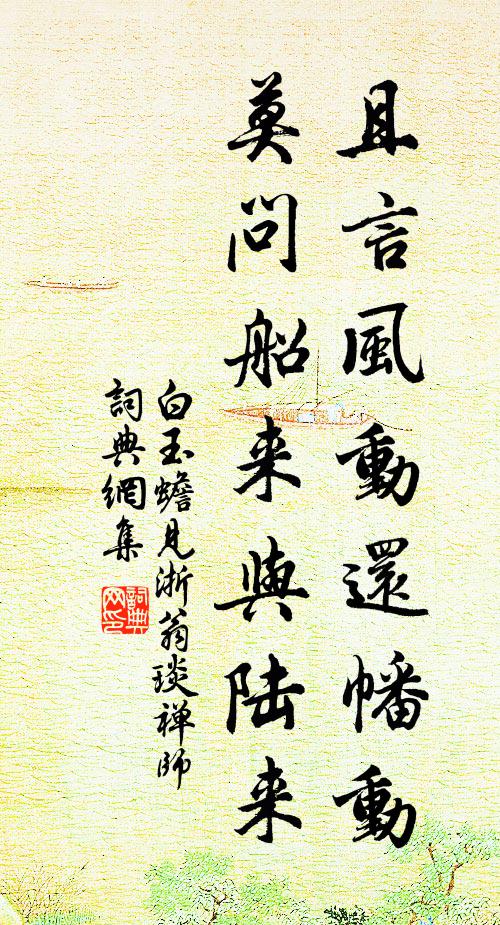 且言風動還幡動
莫問船来與陆来
白玉蟾見浙翁琰禅師
詞典網集
詞典网印